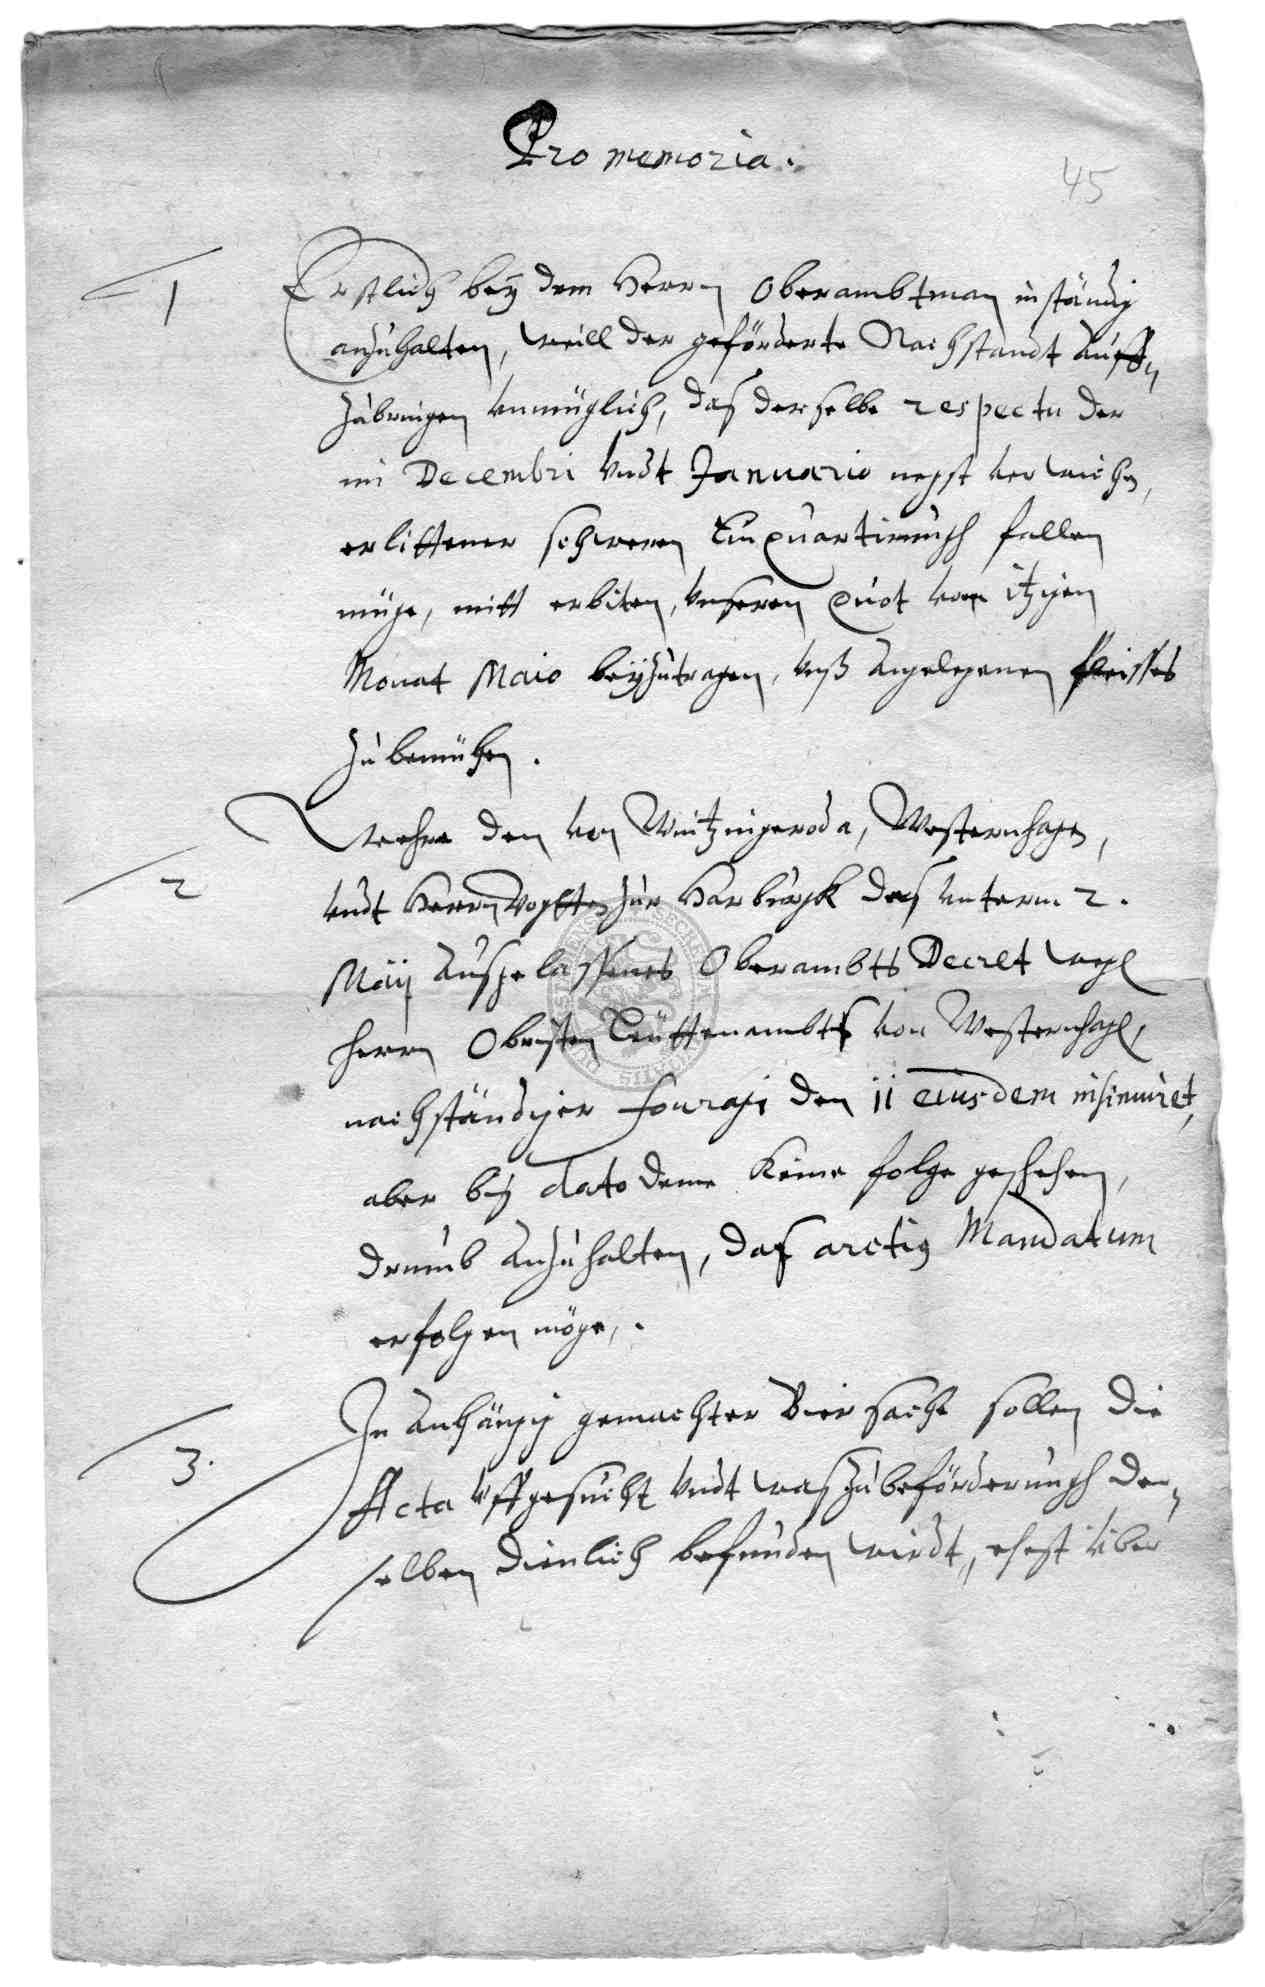 Pro memoria.
45
1
Erstlich bey dem Herrn Oberambtman inständig
anzuhalten, weill der geförderte Nachstandt auff
zubringen vnmüglich, das derselbe respectu der
im Decembri vndt Januario negst verwichen,
erlittener schweren Einquartirungh fallen
müge, mitt erbieten, vnseren quot vom itzigen
Monat Maio beyzutragen, vnß angelegenen fleisses
zubemühen.
2
Wehre den von Wintzingeroda, Westernhagen,
vndt Herrn Vogtten zur Harburgk das vnterm 2.
Maij außgelassenes Oberambts Decret wegen
herrn Obristen Leuttenambts von Westernhagen,
nachständiger fouragi den 11 eiusdem insinuiret,
aber biß dato deme keine folge geschehen,
drumb anzuhalten, daß arctius Mandatum
erfolgen möge.
3.
In anhängig gemachter Biersache sollen die
Acta vffgesucht vndt was zubeförderungh der
selben dienlich befunden wirdt, ehest über